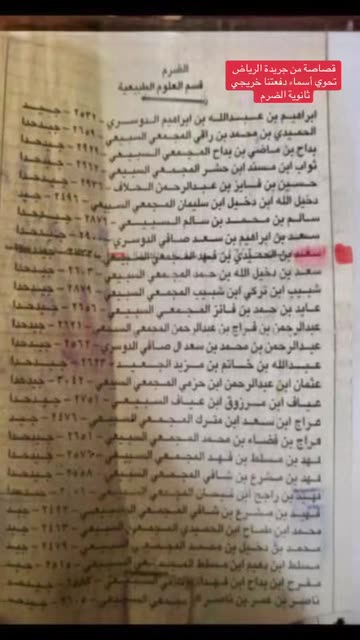 قصاصة من جريدة الرياض
تحوي أسماء دفعتنا خريجي
ثانوية الضرم
الضرم
قسم العلوم الطبيعية
ابراهيم بن عبدالله بن ابراهيم الدوسري - ٢٥٣٢ - جيد
الحميدي بن محمد بن راقي المجمعي السبيعي - ٢٦٥٩ - جيدجدا
بداح بن ماضي بن بداح المجمعي السبيعي - ٢٩٢٩ - جيدجدا
ثواب ابن مسند ابن حشر المجمعي السبيعي - ٢٦٦٢ - جيدجدا
حسين بن فايز بن عبدالرحمن الحلاف - ٢٩٣٦ - جيدجدا
دخيل الله ابن دخيل ابن سليمان المجمعي السبيعي - ٢٤٩٦ - جيد
سالم بن محمد بن سالم السبيعي - ٢٨٧٩ - جيدجدا
سعد بن ابراهيم بن سعد صافي الدوسري - ٢٩٠٠ - جيدجدا
سعد بن الحميدي بن فهد المجمعي السبيعي
سعد بن دخيل الله بن حمد المجمعي السبيعي - ٢٦٠٣ - جيدجدا
شبيب ابن تركي ابن شبيب المجمعي السبيعي - ٢٨٧٩ - جيدجدا
عايد بن حمد بن فائز المجمعي السبيعي - ٢٦٥٦ - جيدجدا
عبدالرحمن بن فراج بن عبدالرحمن المجمعي السبيعي - ٢٦٢١ - جيدجدا
عبدالرحمن بن محمد بن سعد ال صافي الدوسري - ٢٥٦٢ - جيدجدا
عبدالله بن خاتم بن مزيد الجعيد - ٢٦٢٣ - جيدجدا
عثمان ابن عبدالرحمن ابن حزمي المجمعي السبيعي - ٣٠٤٢ - جيدجدا
عياف ابن مرزوق ابن عياف السبيعي - ٢٧٥١ - جيدجدا
فراج ابن سعد ابن مترك المجمعي السبيعي - ٢٤٧٦ - جيد
فراج بن فضاء بن محمد المجمعي السبيعي - ٢٦٥١ - جيدجدا
فهد بن مسلط بن فهد المجمعي السبيعي - ٢٥٧٦ - جيدجدا
فهد بن مشرع بن شافي المجمعي السبيعي - ٢٥٥٨ - جيد
فهيد بن راجح ابن فيحان المجمعي السبيعي - جيدجدا
فهيد بن مشرع بن شافي المجمعي السبيعي - ٢٤٩٢ - جيد
محمد ابن طماح ابن الحميدي المجمعي السبيعي - ٢٤١٣ - جيد
محمد بن دخيل بن محمد المجمعي السبيعي - ٢٤٧٩ - جيد
مسلط ابن نعيم ابن مسلط المجمعي السبيعي - ٢٥٢٥ - جيد
مفرح ابن بداح ابن فهد السبيعي
ناصر بن عمر بن ناصر